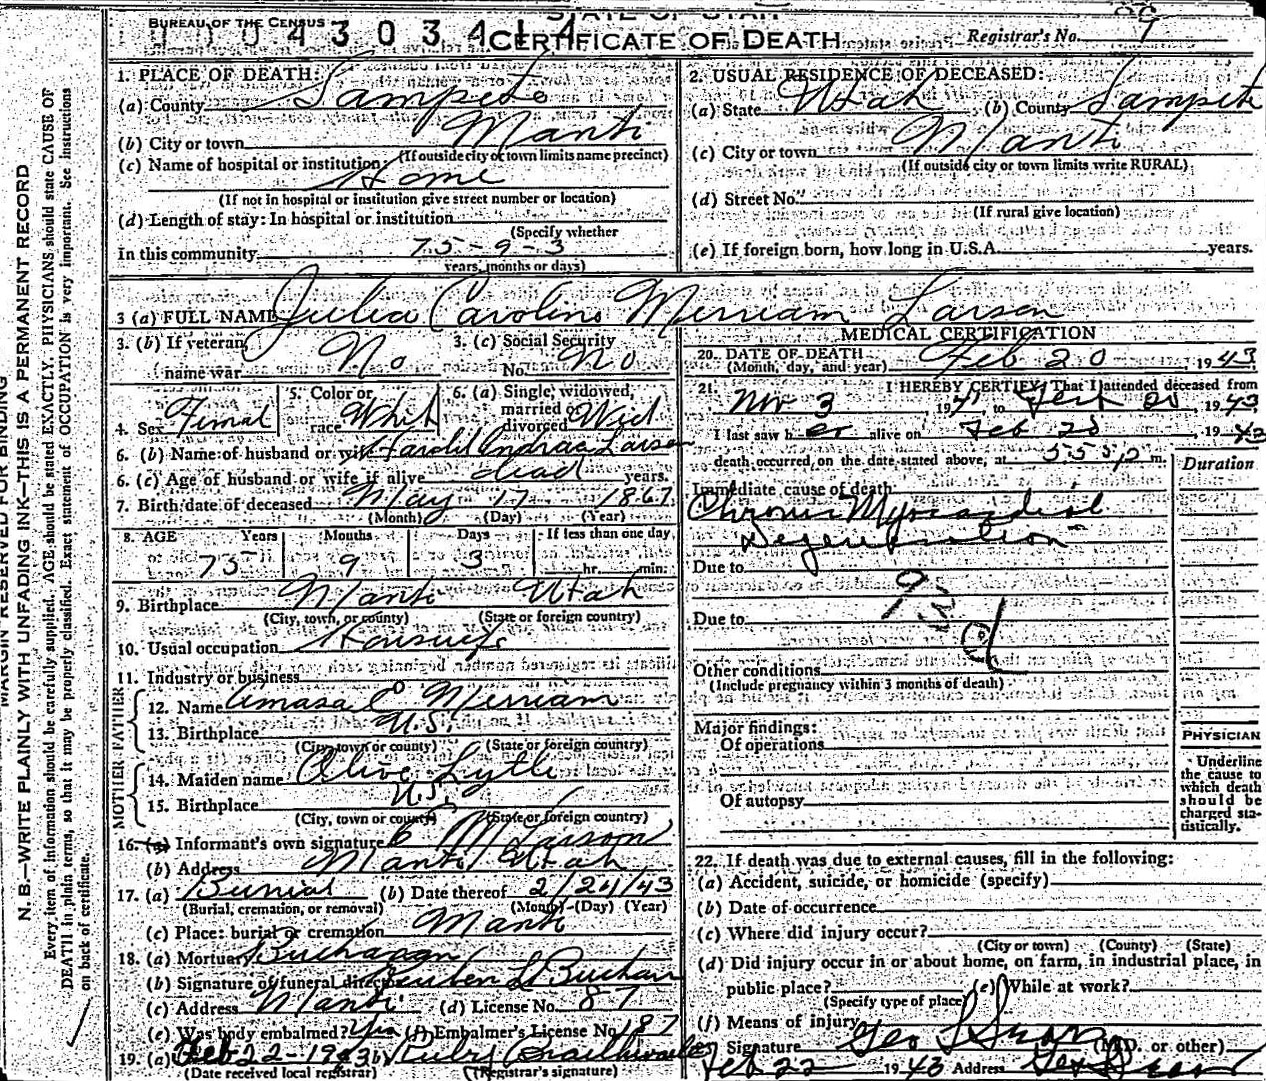 STATE OF UTAH
BUREAU OF THE CENSUS
CERTIFICATE OF DEATH
Registrar's No. 29
MARGIN RESERVED FOR BINDING
N. B.—WRITE PLAINLY WITH UNFADING INK—THIS IS A PERMANENT RECORD
Every item of information should be carefully supplied. AGE should be stated EXACTLY. PHYSICIANS should state CAUSE OF
DEATH in plain terms, so that it may be properly classified. Exact statement of OCCUPATION is very important. See instructions
on back of certificate.
1. PLACE OF DEATH:
(a) County Sanpete
(b) City or town Manti
(If outside city or town limits name precinct)
(c) Name of hospital or institution:
Home
(If not in hospital or institution give street number or location)
(d) Length of stay: In hospital or institution
(Specify whether
In this community 75-9-3
years, months or days)
2. USUAL RESIDENCE OF DECEASED:
(a) State Utah (b) County Sanpete
(c) City or town Manti
(If outside city or town limits write RURAL)
(d) Street No.
(If rural give location)
(e) If foreign born, how long in U.S.A. years.
3 (a) FULL NAME Julia Caroline Merriam Larson
3. (b) If veteran, name war No
3. (c) Social Security No. No
4. Sex Femal
5. Color or race Whit
6. (a) Single, widowed, married or divorced Wid
6. (b) Name of husband or wife Harold Andrae Larsen
6. (c) Age of husband or wife if alive dead years.
7. Birth date of deceased May 17 1867
(Month) (Day) (Year)
8. AGE Years Months Days If less than one day
75 9 3 hr. min.
9. Birthplace Manti Utah
(City, town, or county) (State or foreign country)
10. Usual occupation
11. Industry or business
FATHER
12. Name Amasa E Merriam
13. Birthplace U.S.
(City, town or county) (State or foreign country)
MOTHER
14. Maiden name Olive Lytle
15. Birthplace U.S.
(City, town or county) (State or foreign country)
16. (a) Informant's own signature M Larson
(b) Address Manti Utah
17. (a) Burial (b) Date thereof 2/24/43
(Burial, cremation, or removal) (Month) (Day) (Year)
(c) Place: burial or cremation Manti
18. (a) Mortuary Buchanan
(b) Signature of funeral director Reuben L Buchan
(c) Address Manti (d) License No. 87
(e) Was body embalmed? Yes (f) Embalmer's License No. 187
19. (a) Feb 22-1943 (b) Ruby Braithwaite
(Date received local registrar) (Registrar's signature)
MEDICAL CERTIFICATION
20. DATE OF DEATH Feb 20, 1943
(Month, day, and year)
21. I HEREBY CERTIFY, That I attended deceased from
Nov 3, 1941, to Feb 20, 1943,
I last saw her alive on Feb 20, 1943
death occurred on the date stated above, at 5:55 p m.
Duration
Immediate cause of death
Chronic Myocardial
Degeneration
Due to
93d
Due to
Other conditions
(Include pregnancy within 3 months of death)
Major findings:
Of operations
Of autopsy
PHYSICIAN
Underline
the cause to
which death
should be
charged sta-
tistically.
22. If death was due to external causes, fill in the following:
(a) Accident, suicide, or homicide (specify)
(b) Date of occurrence
(c) Where did injury occur?
(City or town) (County) (State)
(d) Did injury occur in or about home, on farm, in industrial place, in
public place? (e) While at work?
(Specify type of place)
(f) Means of injury
Signature Geo (M.D. or other)
Feb 22 1943 Address